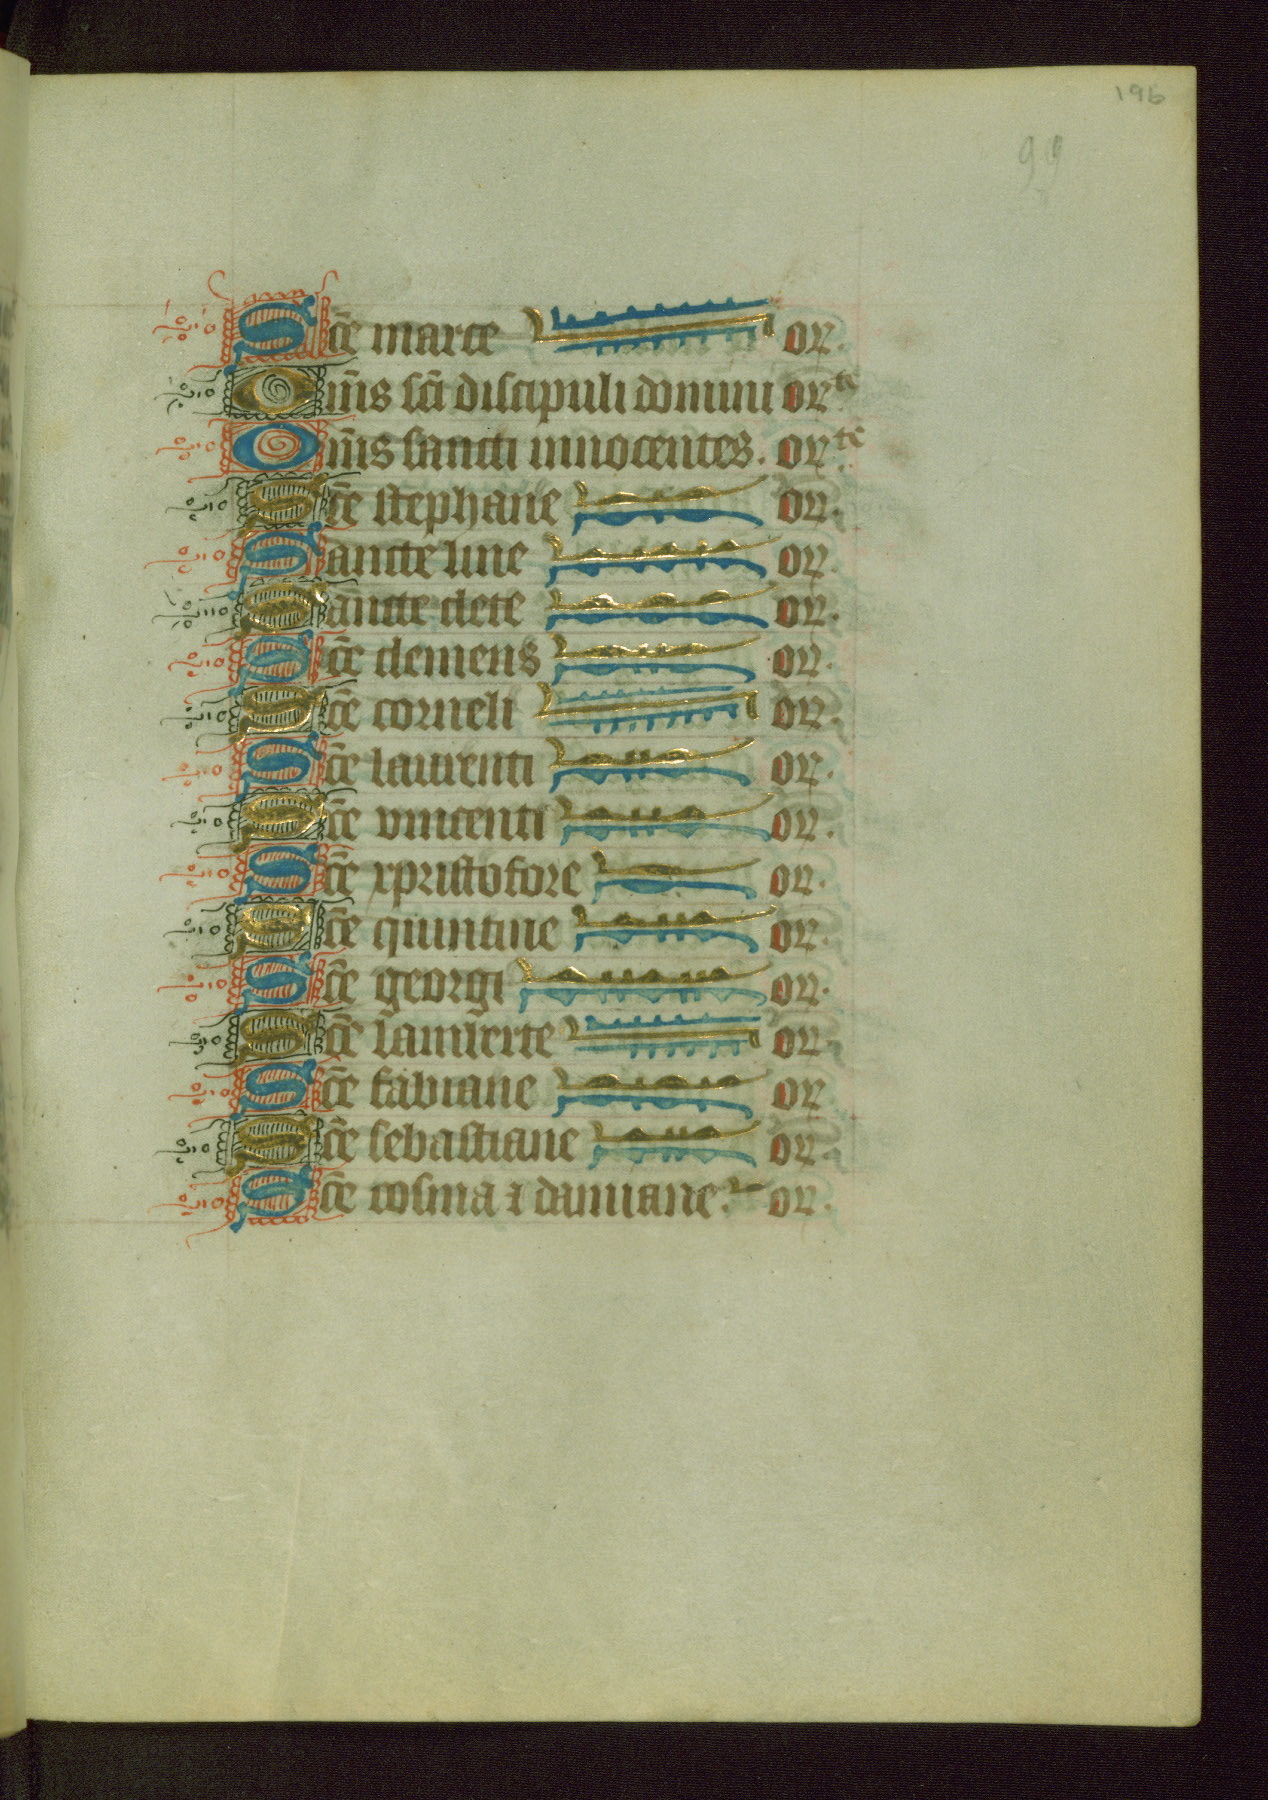 196
99
Sc̄e marce or.
Om̄s sc̄i discipuli domini orte
Om̄s sancti innocentes. orte.
Sc̄e stephane or.
Sancte line or.
Sancte clete or.
Sc̄e clemens or.
Sc̄e corneli or.
Sc̄e laurenti or.
Sc̄e vincenti or.
Sc̄e xpristofore or.
Sc̄e quintine or.
Sc̄e georgi or.
Sc̄e lamberte or.
Sc̄e fabiane or
Sc̄e sebastiane or.
Sc̄e cosma ⁊ damiane. or.